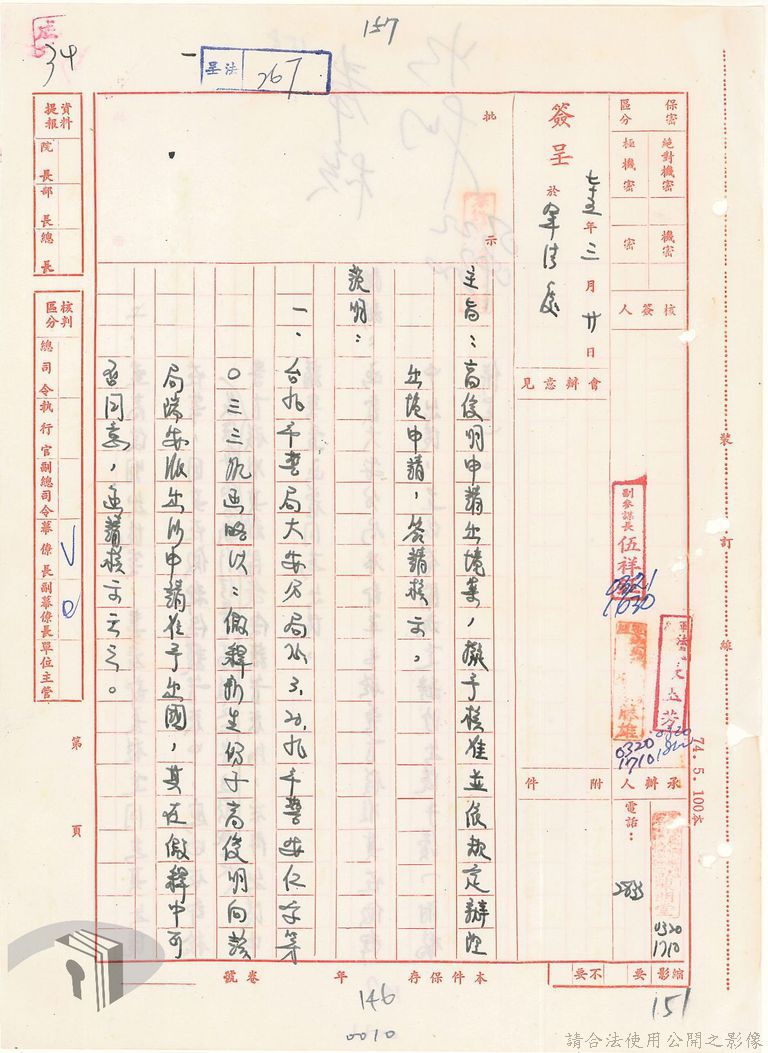 157
34
呈法
267
保密區分
絕對機密
極機密
機密
密
簽呈
於
七十五年三月廿日
軍法處
核簽人
會辦意見
副參謀長伍祥
0321
1030
軍法
0320
1710
0320
承辦人
附件
電話：
2833
0320
1710
縮影
要
不要
批示
主旨：高俊明申請出境案，擬予核准並依規定辦理
出境申請，簽請核示。
說明：
一、台北市警局大安分局75.3.20.北市警安仁字第
〇三三九函略以：假釋衍生份子高俊明向該
局陳安服出沙申請准予出國，其在假釋中可
否同意，函請核示云云。
本件保存年
卷號
資料提報
院長
部長
總長
核判區分
總司令
執行官
副總司令
幕僚長
副幕僚長
單位主管
第頁
裝訂線
74.5.100本
146
0010
151
請合法使用公開之影像